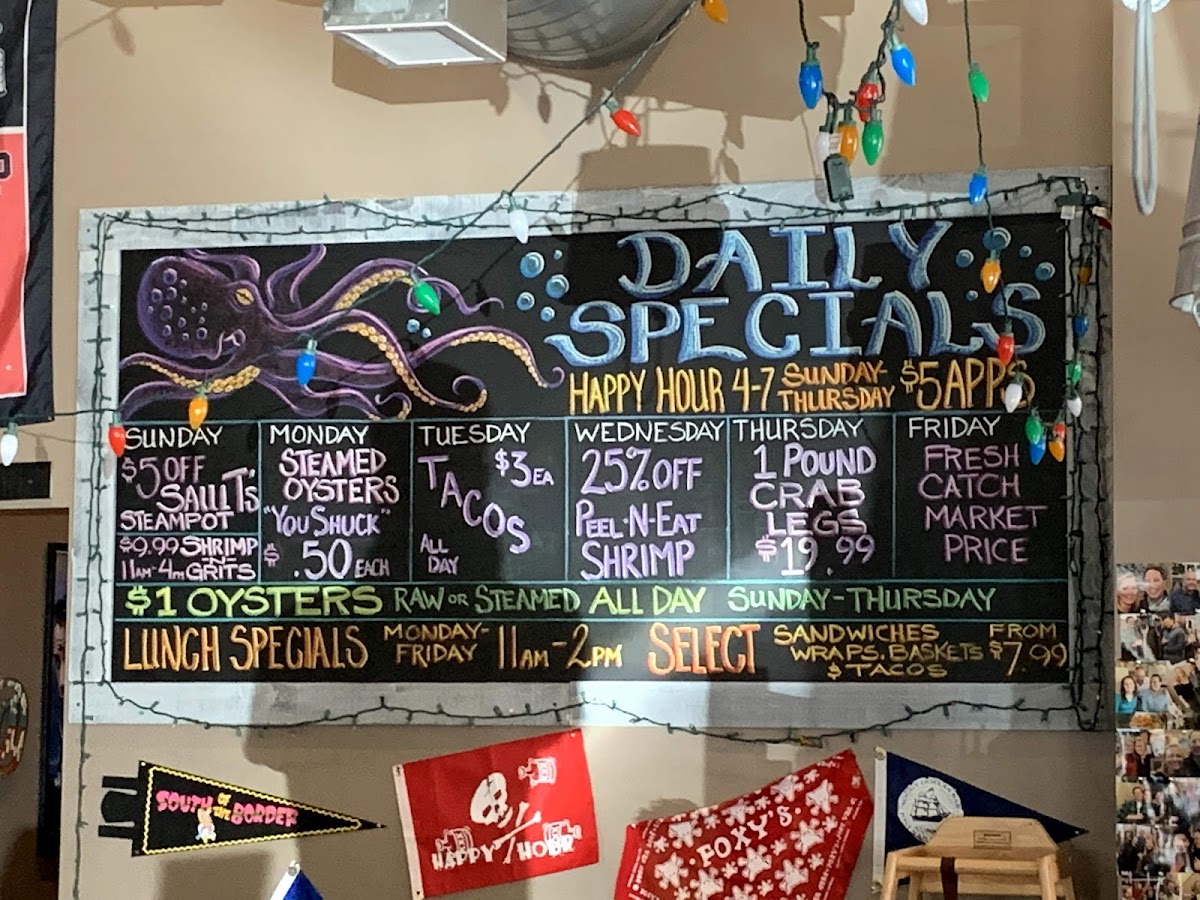 DAILY
SPECIALS
HAPPY HOUR 4-7 SUNDAY-THURSDAY $5 APPS
SUNDAY
$5 OFF
SALLT'S
STEAMPOT
$9.99 SHRIMP
-N-
11AM-4PM GRITS
MONDAY
STEAMED
OYSTERS
"YOU SHUCK"
$.50 EACH
TUESDAY
$3 EA
TACOS
ALL
DAY
WEDNESDAY
25% OFF
PEEL-N-EAT
SHRIMP
THURSDAY
1 POUND
CRAB
LEGS
$19.99
FRIDAY
FRESH
CATCH
MARKET
PRICE
$1 OYSTERS RAW OR STEAMED ALL DAY SUNDAY-THURSDAY
LUNCH SPECIALS MONDAY-FRIDAY 11AM-2PM SELECT SANDWICHES WRAPS. BASKETS $ TACOS FROM $7.99
SOUTH OF THE BORDER
HAPPY HOUR
FOXY'S